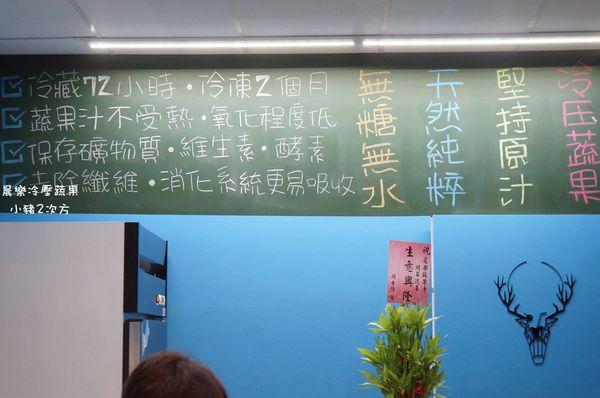 冷藏72小時·冷凍2個月
蔬果汁不受熱·氧化程度低
保存礦物質·維生素·酵素
去除纖維·消化系統更易吸收
無糖無水
天然純粹
堅持原汁
冷压蔬果
晨樂冷壓蔬果
小豬2次方
祝
生意興隆